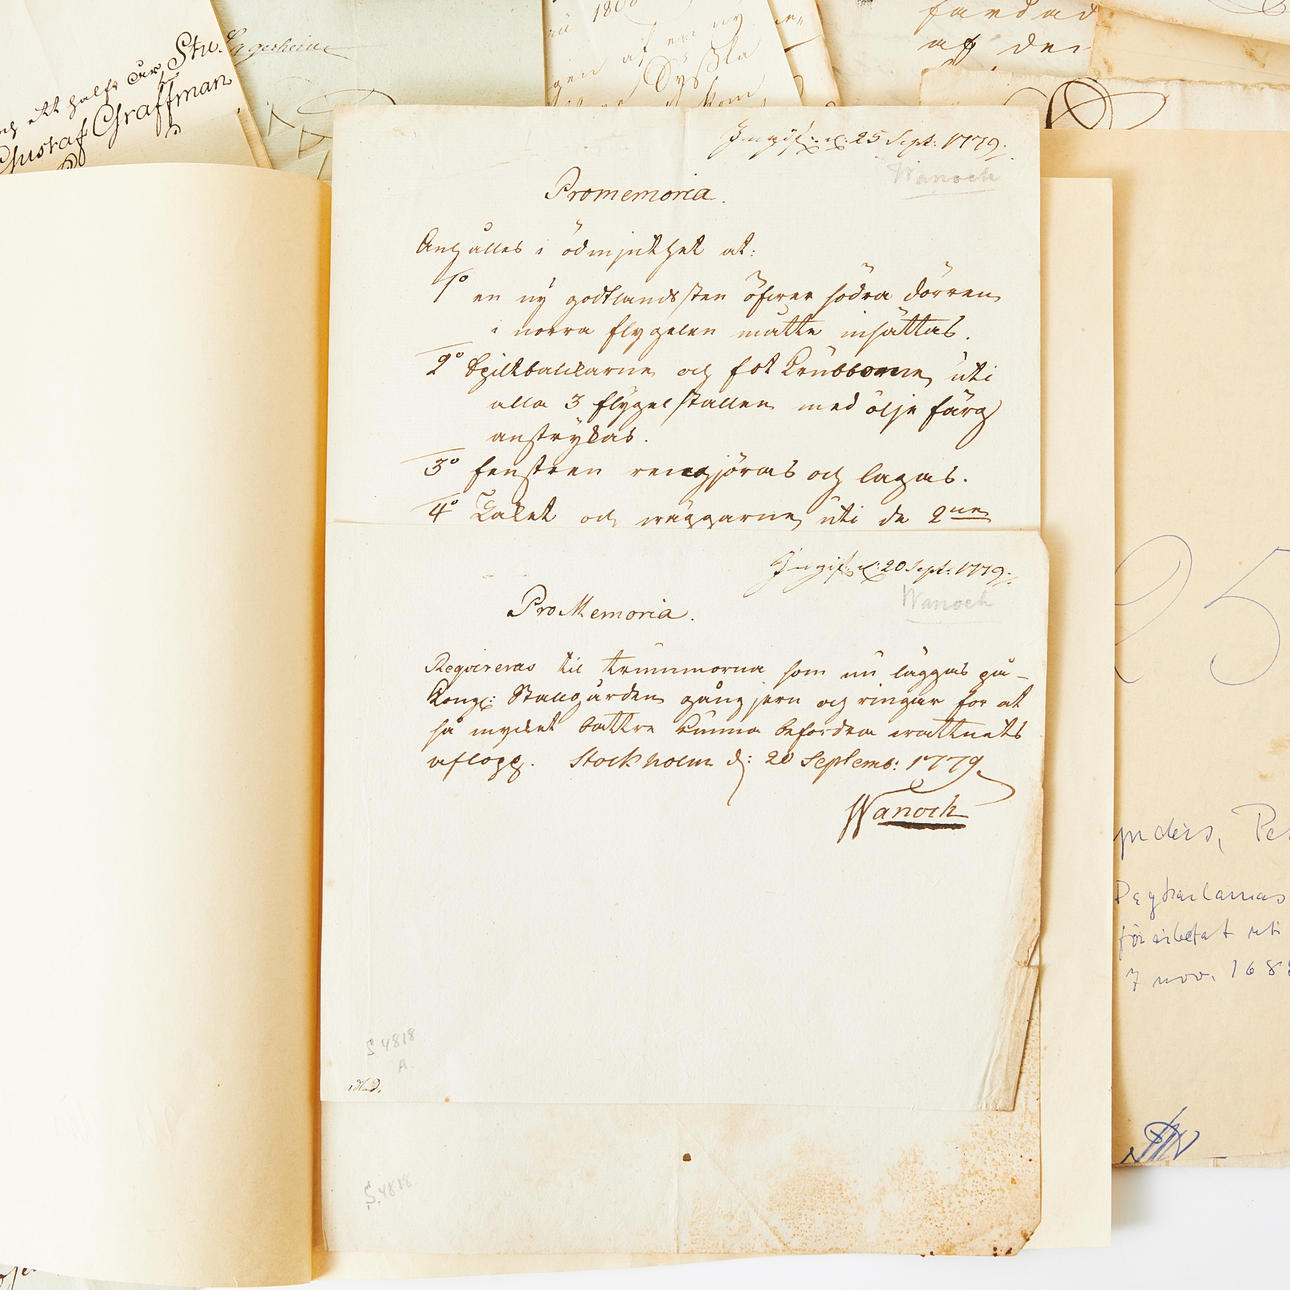 Stw.
Gustaf Graffman
1800
af en ny
som
af den
Ingif: d: 25 Sept: 1779.
Wanoch
Promemoria.
Anhålles i ödmjukhet at:
1º en ny godtlandssten öfwer södra dörren
i norra flygelen måtte insättas.
2º Spiltbalkarne och fot krubborne uti
alla 3 flygel stallen med olje färg
anstrykas.
3º fenstren rengjöras och lagas.
4º Taket och wäggarne uti de 2ne
Ingif: d: 20 Sept: 1779.
Wanoch
ProMemoria.
Requireras til trummorna som nu läggas på
Kongl: Stallgården gångjern och ringar for at
så mycket battre kunna befordra wattnets
aflopp. Stockholm d: 20 Septemb: 1779.
Wanoch
S 4818
A.
S. 4818
25
7 nov. 168